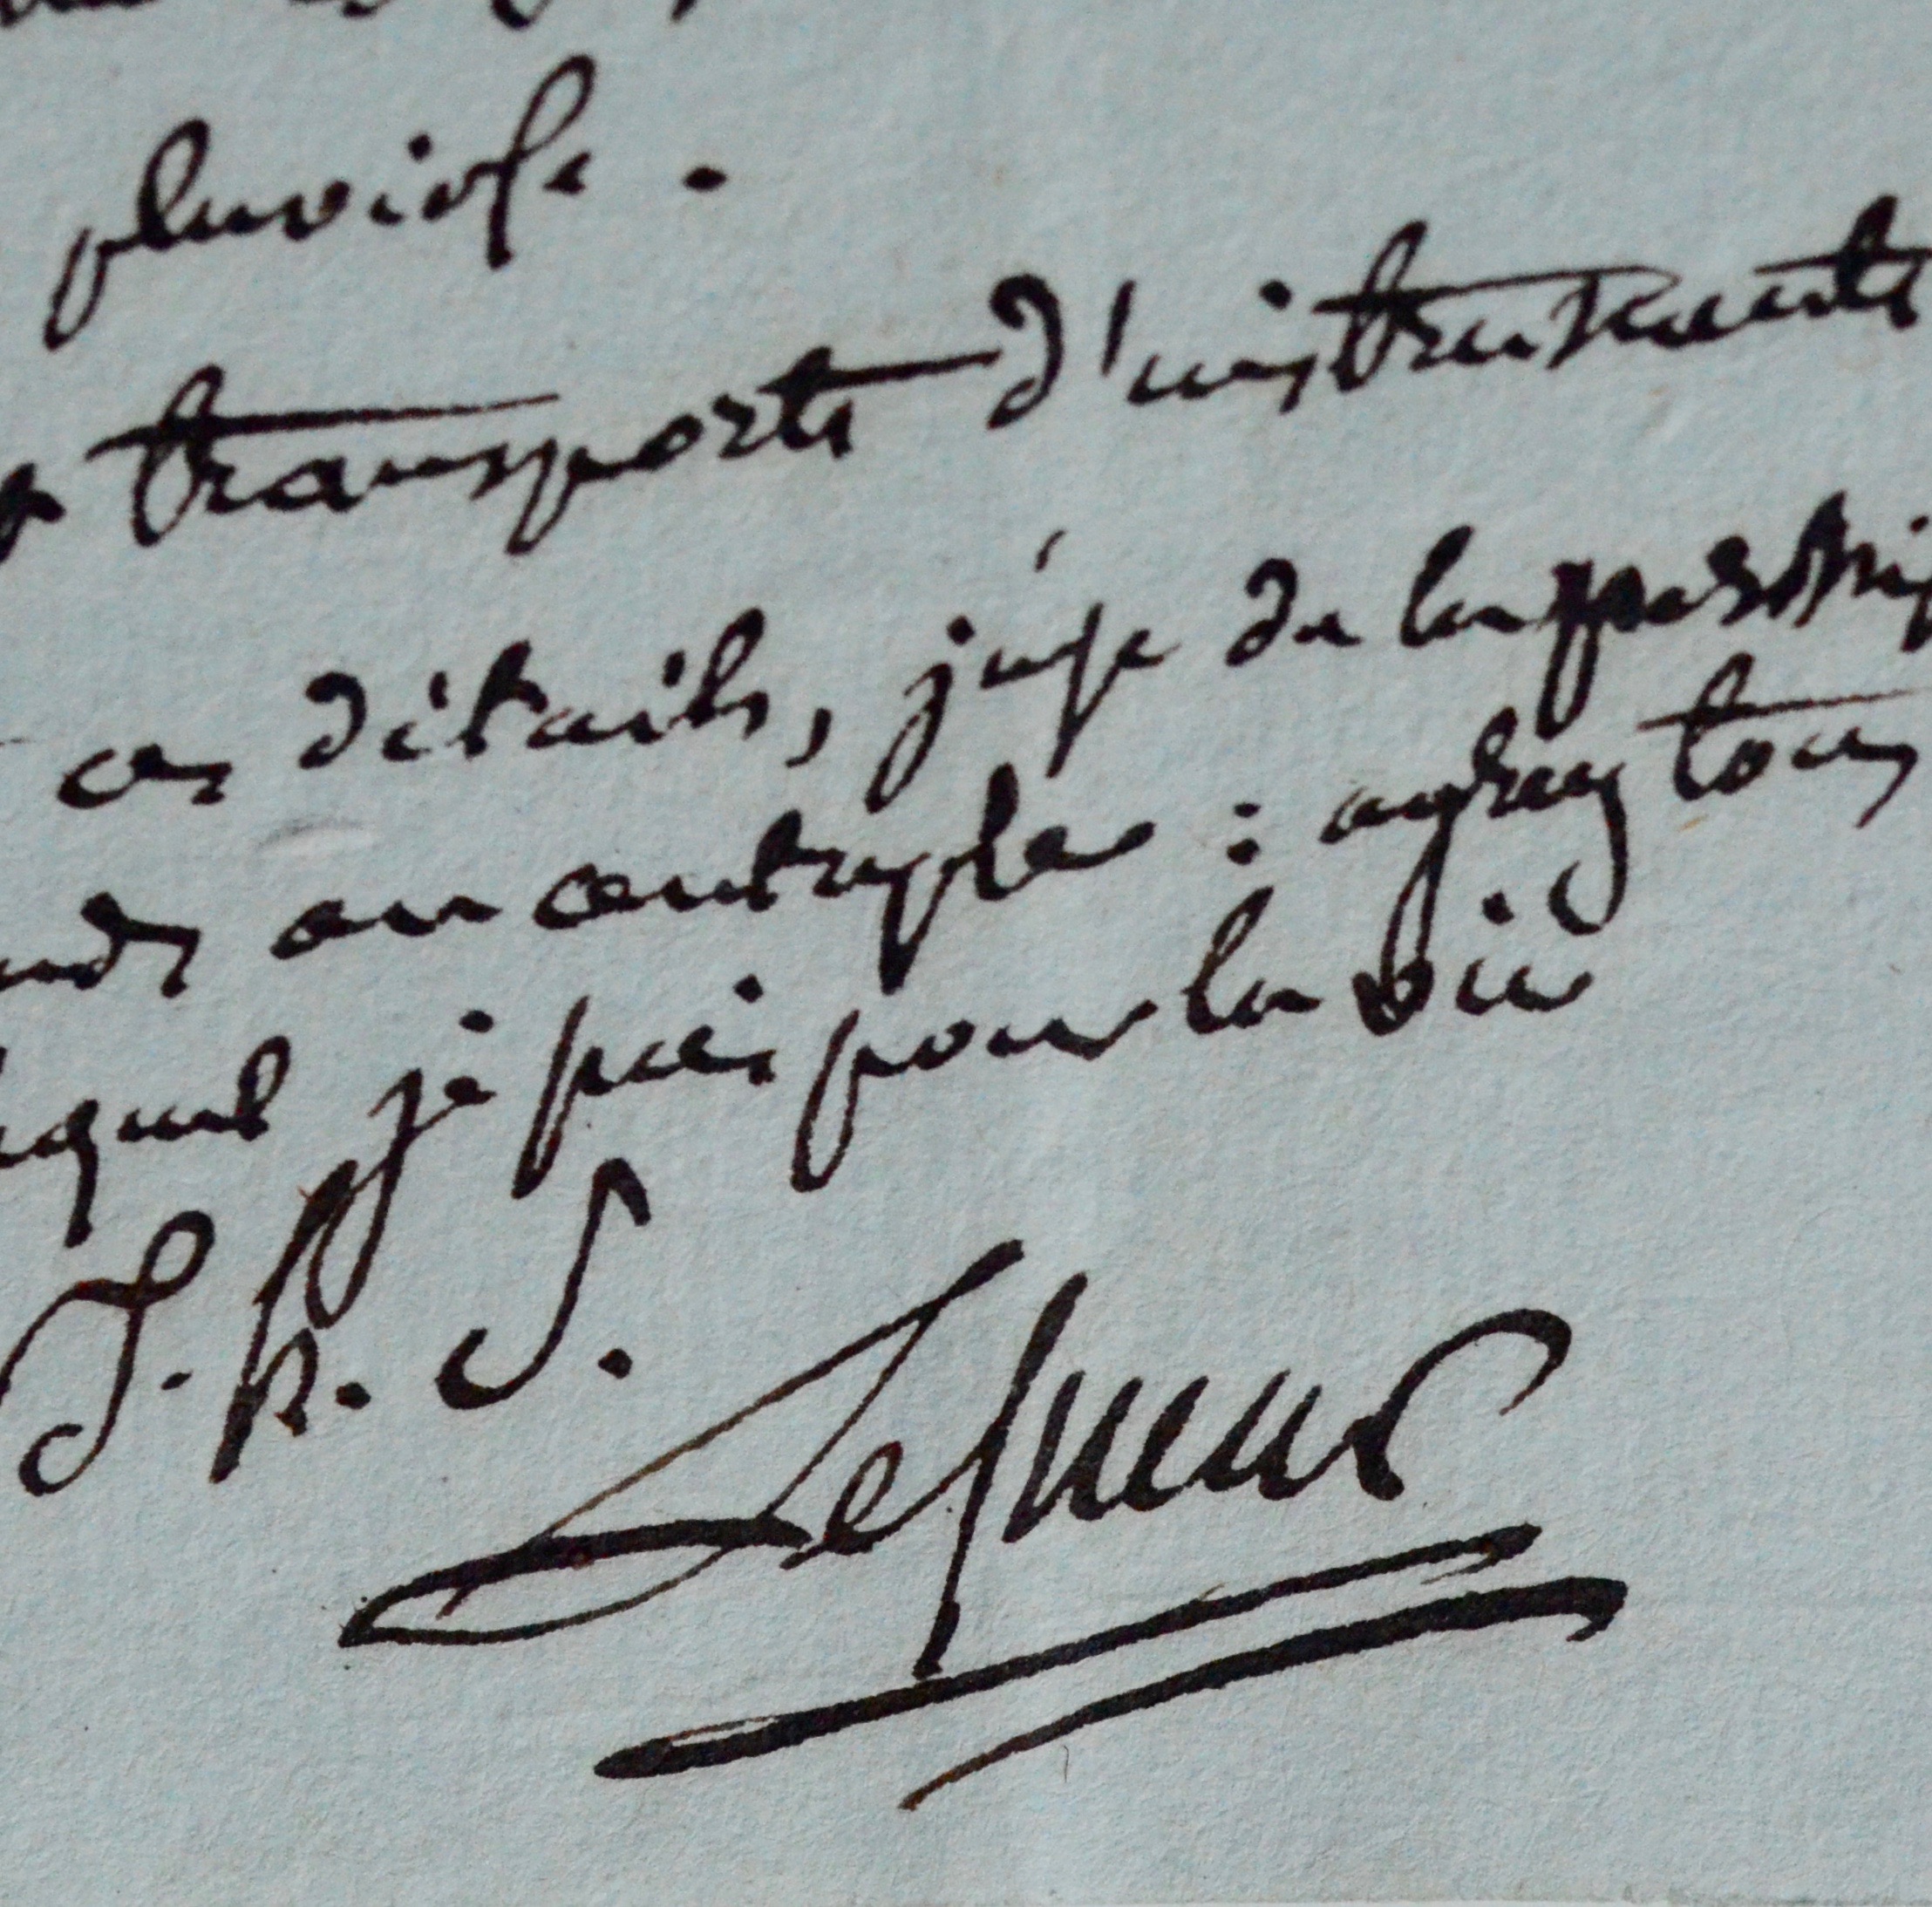 pluviose .
transports d'instruments
ces détails, juge de la possi
au centuple : agreez tous
je suis pour la vie
T. h. S.
Lesueur